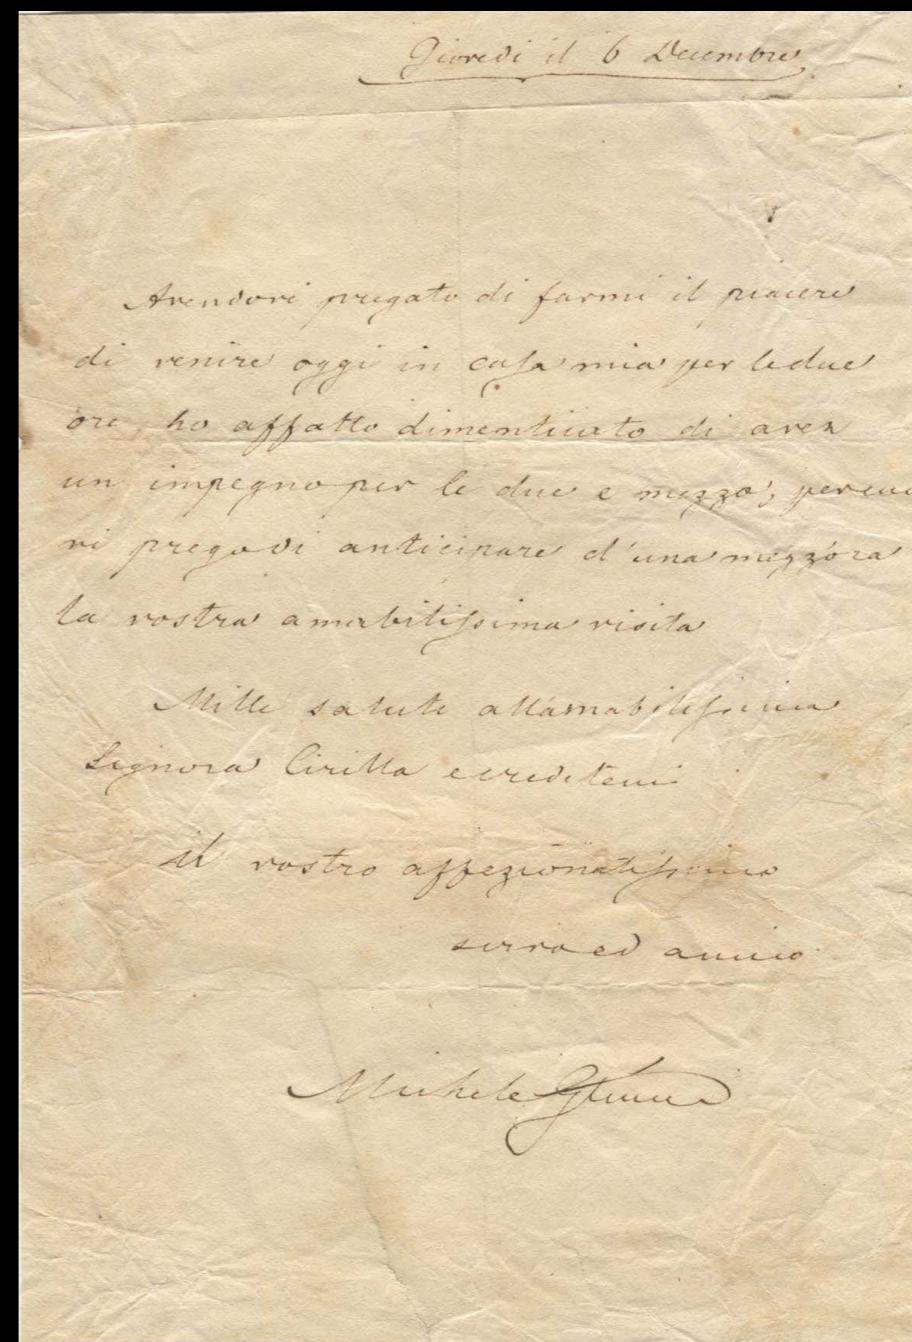 Giovedi il 6 Decembre
Avendovi pregato di farmi il piacere
di venire oggi in casa mia per le due
ore, ho affatto dimenticato di aver
un impegno per le due e mezzo, perciò
vi prego di anticipare d'una mezz'ora
la vostra amabilissima visita
Mille salute all'amabilissima
Signora Cirilla e credetemi
il vostro affezionatissimo
servo ed amico
Michele